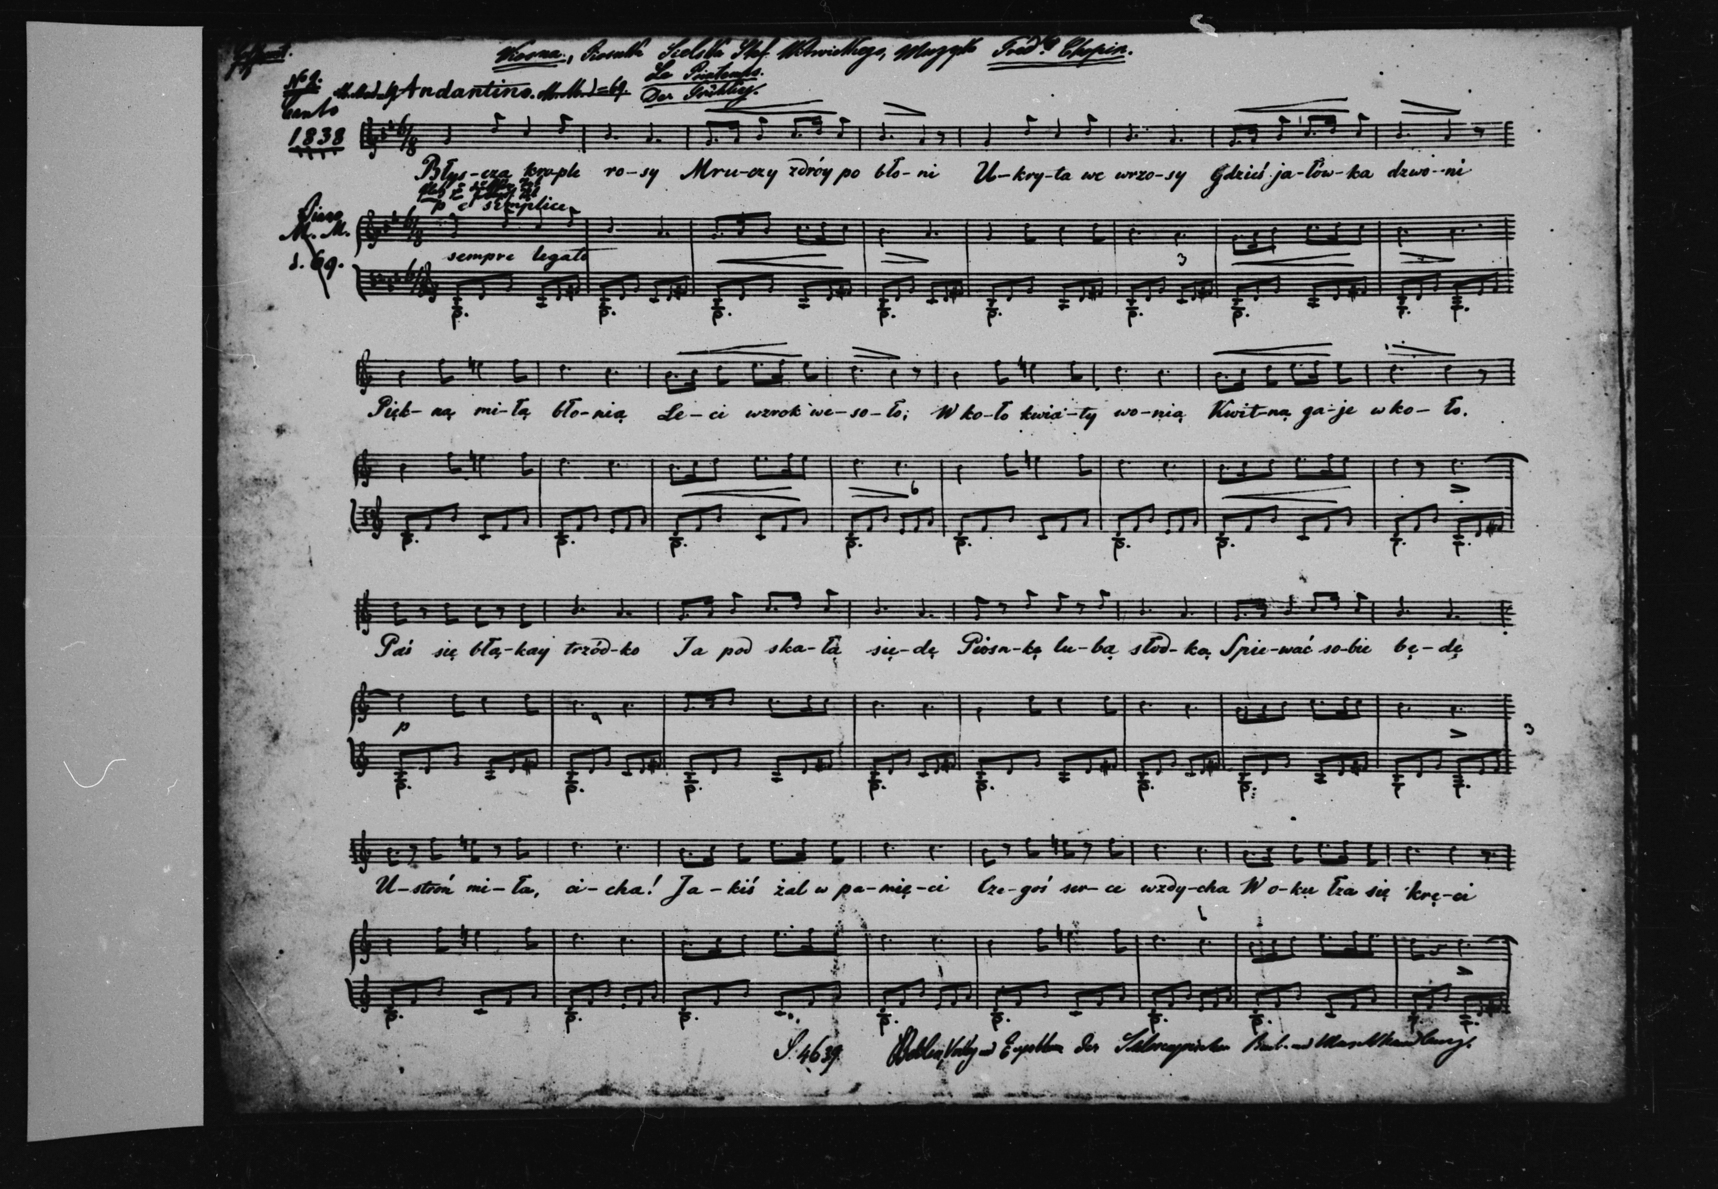 Wiosna, Piosnka Sielska Stef. Witwickiego, Muzyka Fred. Chopin.
Le Printemps.
Der Frühling.
No 2.
Andantino. = 69
Canto
1838
Błys-czą krople ro-sy Mru-czy zdróy po bło-ni U-kry-ta we wrzo-sy Gdzieś ja-łów-ka dzwo-ni
p e semplice
Piano
M. M.
69.
sempre legato
3
Pięk-ną mi-łą bło-nią Le-ci wzrok we-so-ło; W ko-ło kwia-ty wo-nią Kwit-ną ga-je w ko-ło.
6
Paś się błą-kay trzód-ko Ja pod ska-łą się-dę Piosn-kę lu-bą słod-ką Spie-wać so-bie bę-dę
p
9
3
U-stroń mi-ła, ci-cha! Ja-kiś żal w pa-mię-ci Cze-goś ser-ce wzdy-cha W o-ku łza się krę-ci
S. 4639. Berlin, der Schlesingerschen Buch- und Musikhandlung.